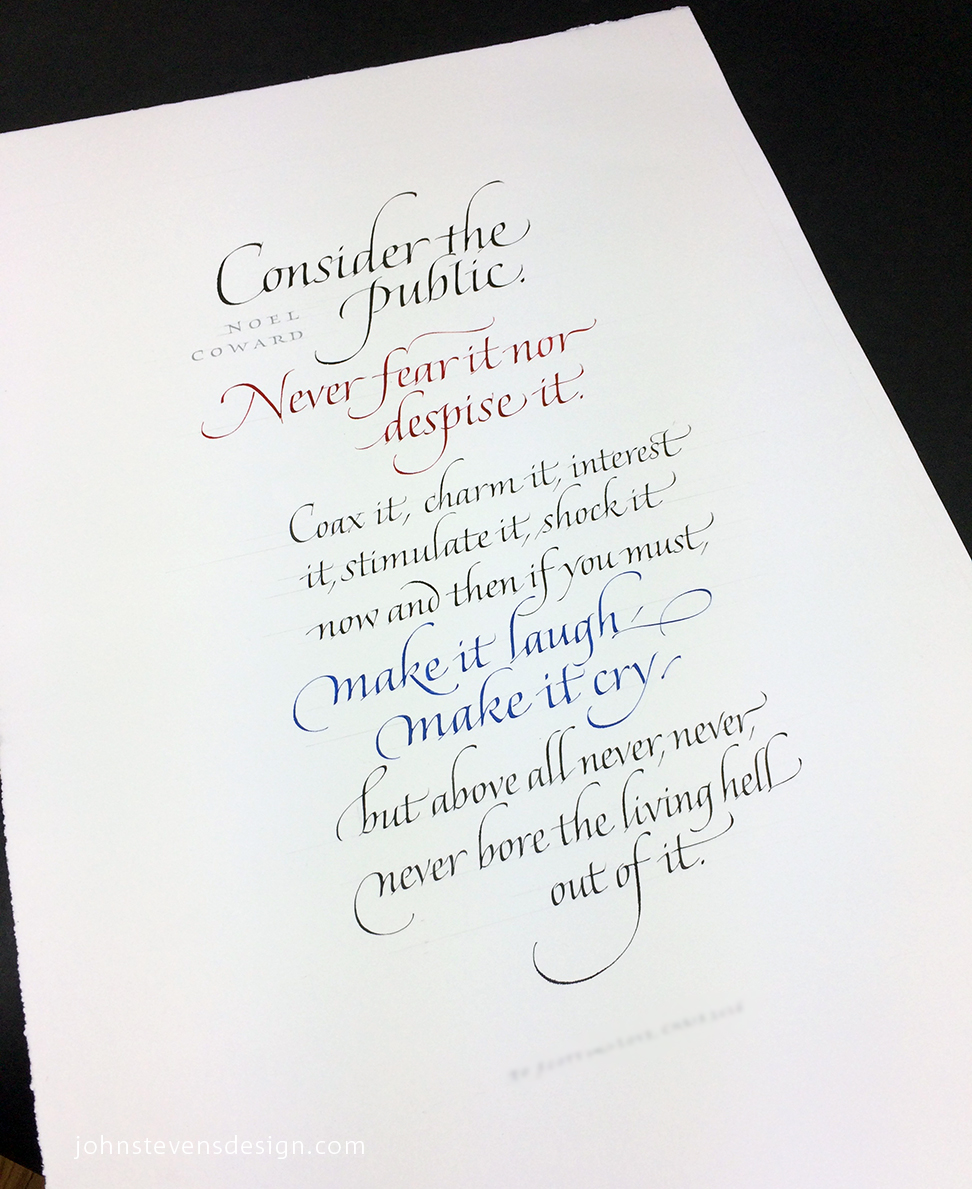 Consider the
public.
NOEL
COWARD
Never fear it nor
despise it.
Coax it, charm it, interest
it, stimulate it, shock it
now and then if you must,
make it laugh,
make it cry,
but above all never, never,
never bore the living hell
out of it.
johnstevensdesign.com